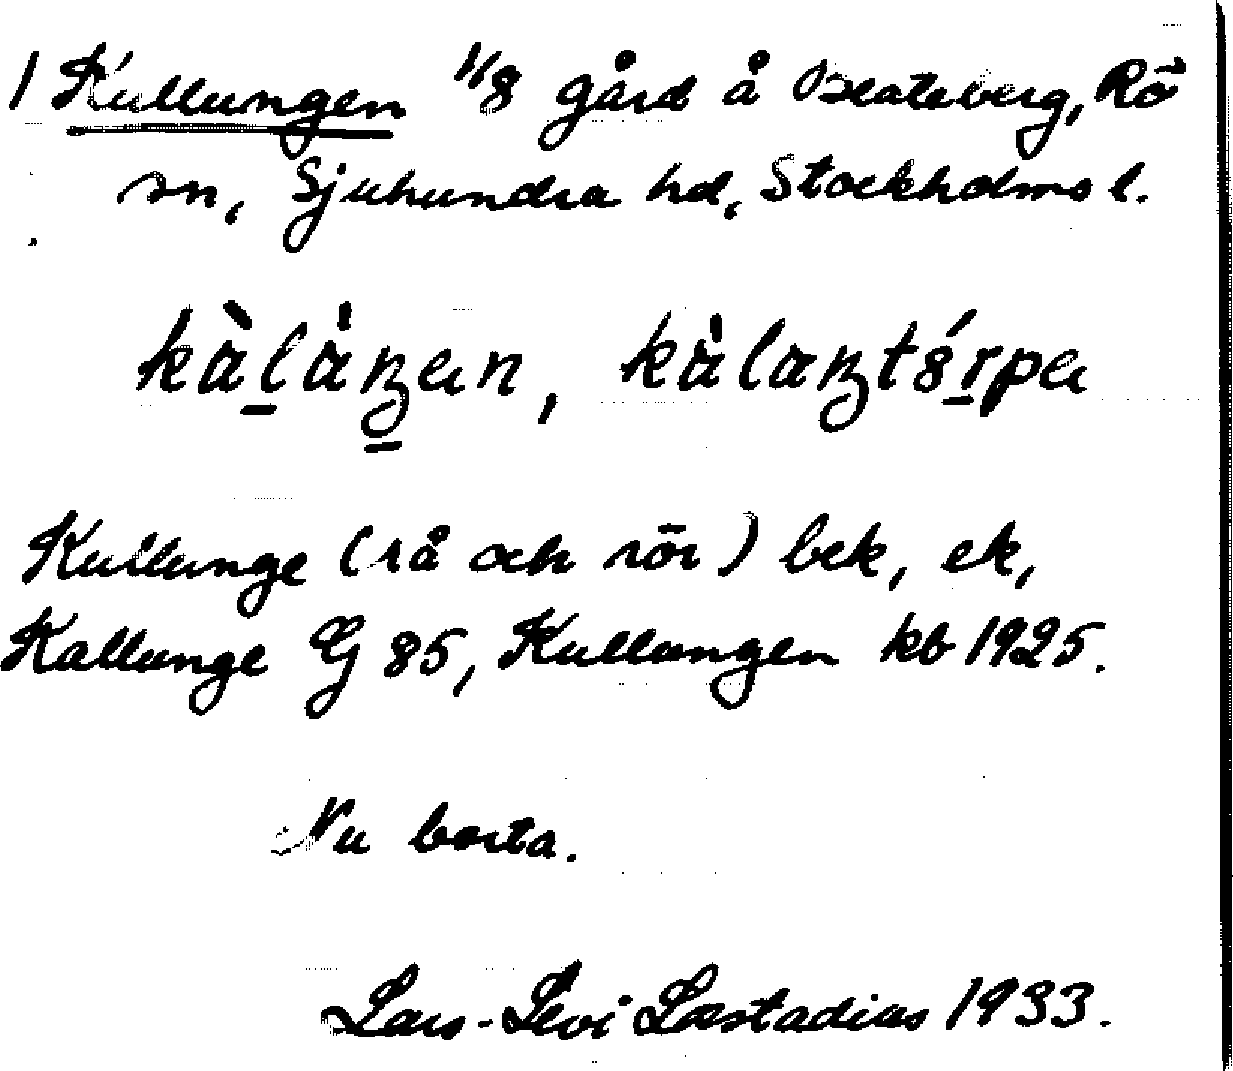 1 Kullungen 1/8 gård å Beateberg, Rö
sn, Sjuhundra hd, Stockholms l.
Kullunge (rå och rör) bek, ek,
Kallunge G 85, Kullungen kb 1925.
Nu borta.
Lars-Levi Læstadius 1933.